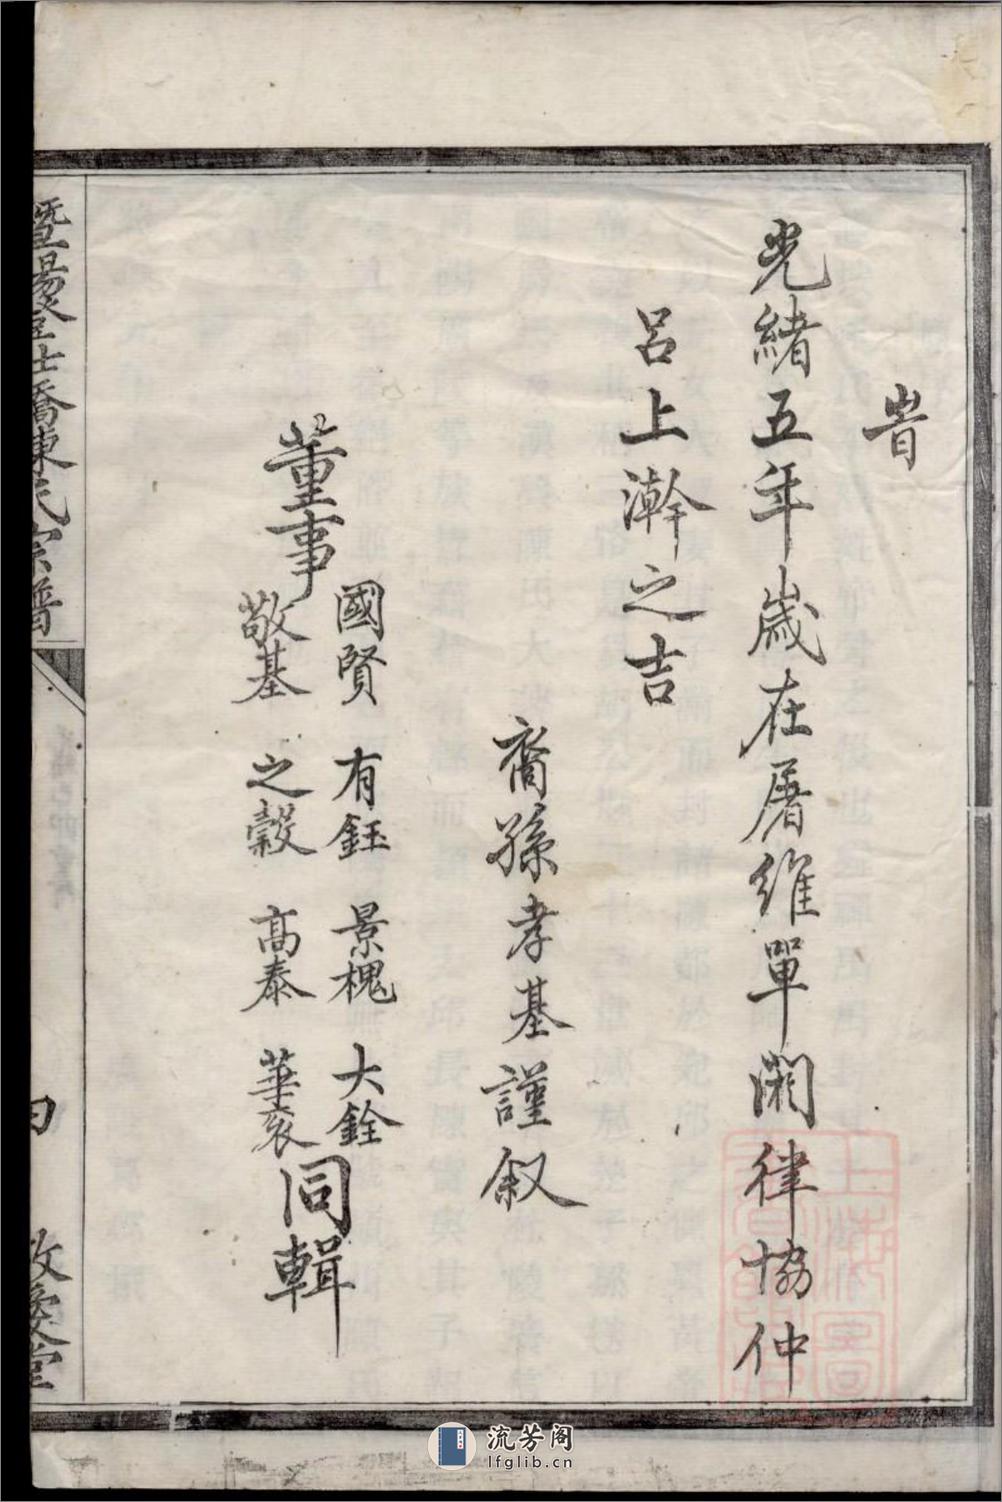 旹
光緒五年歲在屠維單閼律協仲
呂上澣之吉
裔孫孝基謹叙
董事
國賢 有鈺 景槐 大銓
敬基 之穀 高泰 華袞
同輯
暨陽 橋東氏宗譜
敬愛堂
流芳阁
lfglib.cn